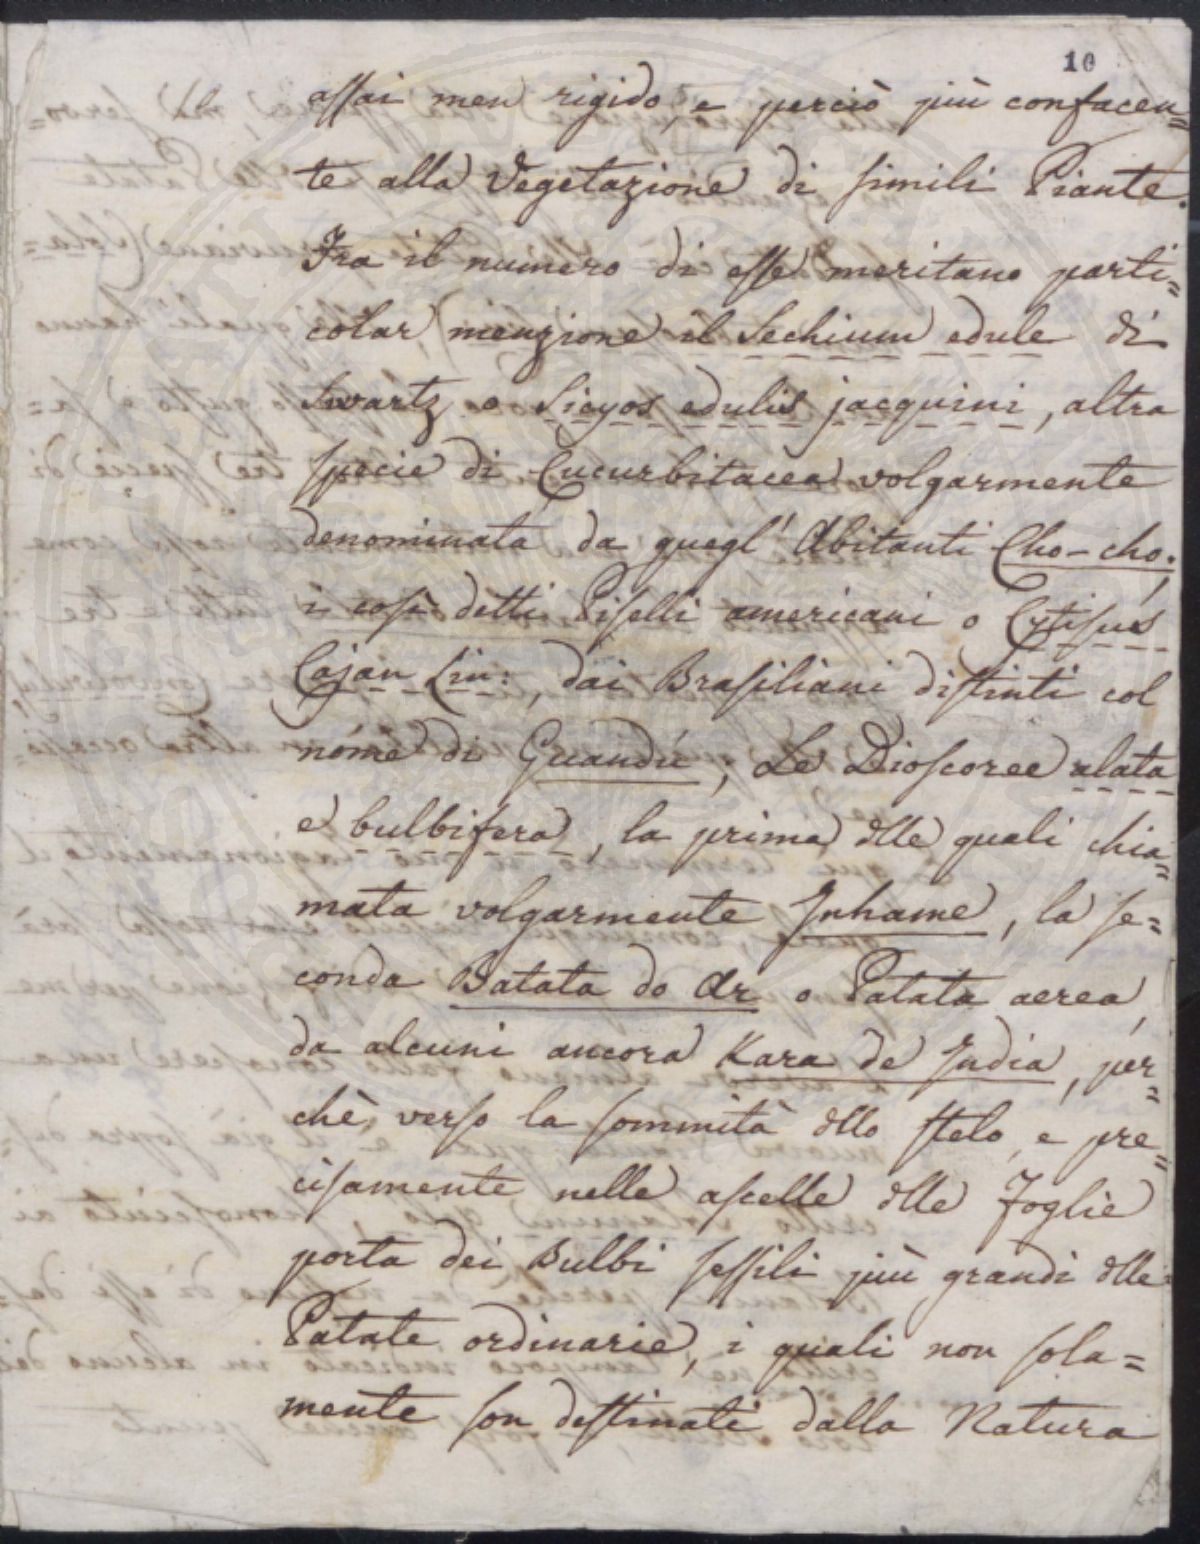 10
assai men rigido, e perciò più confacen=
te alla Vegetazione di simili Piante.
Fra il numero di esse meritano parti=
colar menzione il Sechium edule di
Swartz o Sicyos edulis jacquini, altra
specie di Cucurbitacea volgarmente
denominata da quegl' Abitanti Cho-cho;
i così detti Piselli americani o Cytisus
Cajan Lin:, dai Brasiliani distinti col
nóme di Guandú; Le Dioscoree alata
e bulbifera, la prima dlle quali chia=
mata volgarmente Inhame, la se=
conda Batata do Ar o Patata aerea,
da alcuni ancora Kara de India, per=
chè verso la sommità dllo stelo, e pre=
cisamente nelle ascelle dlle Foglie
porta dei Bulbi sessili più grandi dlle
Patate ordinarie, i quali non sola=
mente son destinati dalla Natura